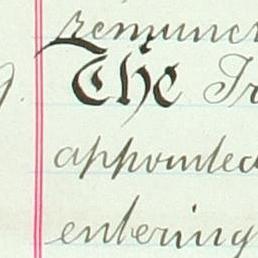 remunera
9. The Tr
appointed
entering